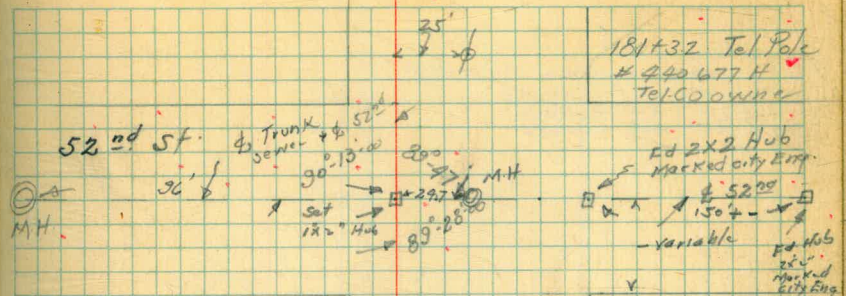 25'
181+32 Tel Pole
# 440677H
Tel. Co owne
52nd St.
℄ Trunk
Sewer + ℄ 52nd
90°-13'-00
89°-47'
96'
M.H
M.H
24.7
Set
1"x2" Hub
89°-28'-00
Fd 2x2 Hub
Marked City Eng.
℄ 52nd
150' + -
- variable
Fd Hub
2"x2"
Marked
City Eng